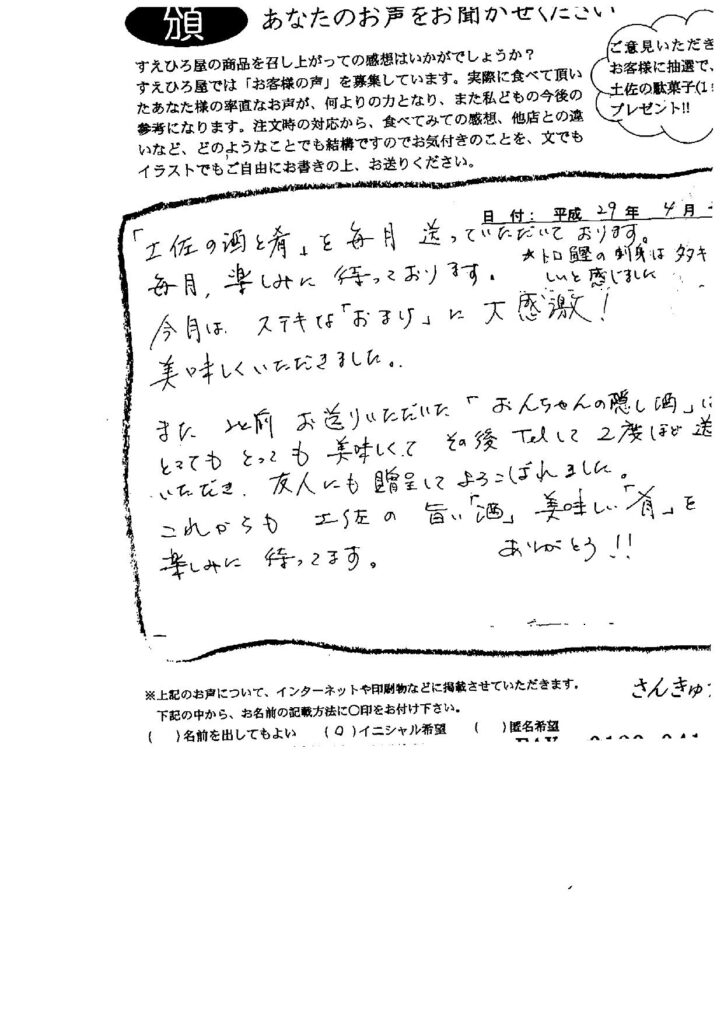 頒
あなたのお声をお聞かせください
すえひろ屋の商品を召し上がっての感想はいかがでしょうか？
すえひろ屋では「お客様の声」を募集しています。実際に食べて頂い
たあなた様の率直なお声が、何よりの力となり、また私どもの今後の
参考になります。注文時の対応から、食べてみての感想、他店との違
いなど、どのようなことでも結構ですのでお気付きのことを、文でも
イラストでもご自由にお書きの上、お送りください。
ご意見いただき
お客様に抽選で、
土佐の駄菓子(1
プレゼント!!
日 付： 平成 29 年 4 月
「土佐の酒と肴」を毎月 送っていただいております。
毎月、楽しみに 待っております。
★トロ鰹の刺身は タタキ
しいと感じました
今月は ステキな「おまけ」に 大感激！
美味しくいただきました。
また 以前 お送りいただいた「おんちゃんの隠し酒」に
とってもとっても 美味しくて その後 Telして 2度ほど 送
いただき、友人にも贈呈して よろこばれました。
これからも 土佐の 旨い「酒」美味しい「肴」を
楽しみに 待ってます。
ありがとう!!
※上記のお声について、インターネットや印刷物などに掲載させていただきます。
下記の中から、お名前の記載方法に○印をお付け下さい。
さんきゅ
(　)名前を出してもよい　(○)イニシャル希望　(　)匿名希望